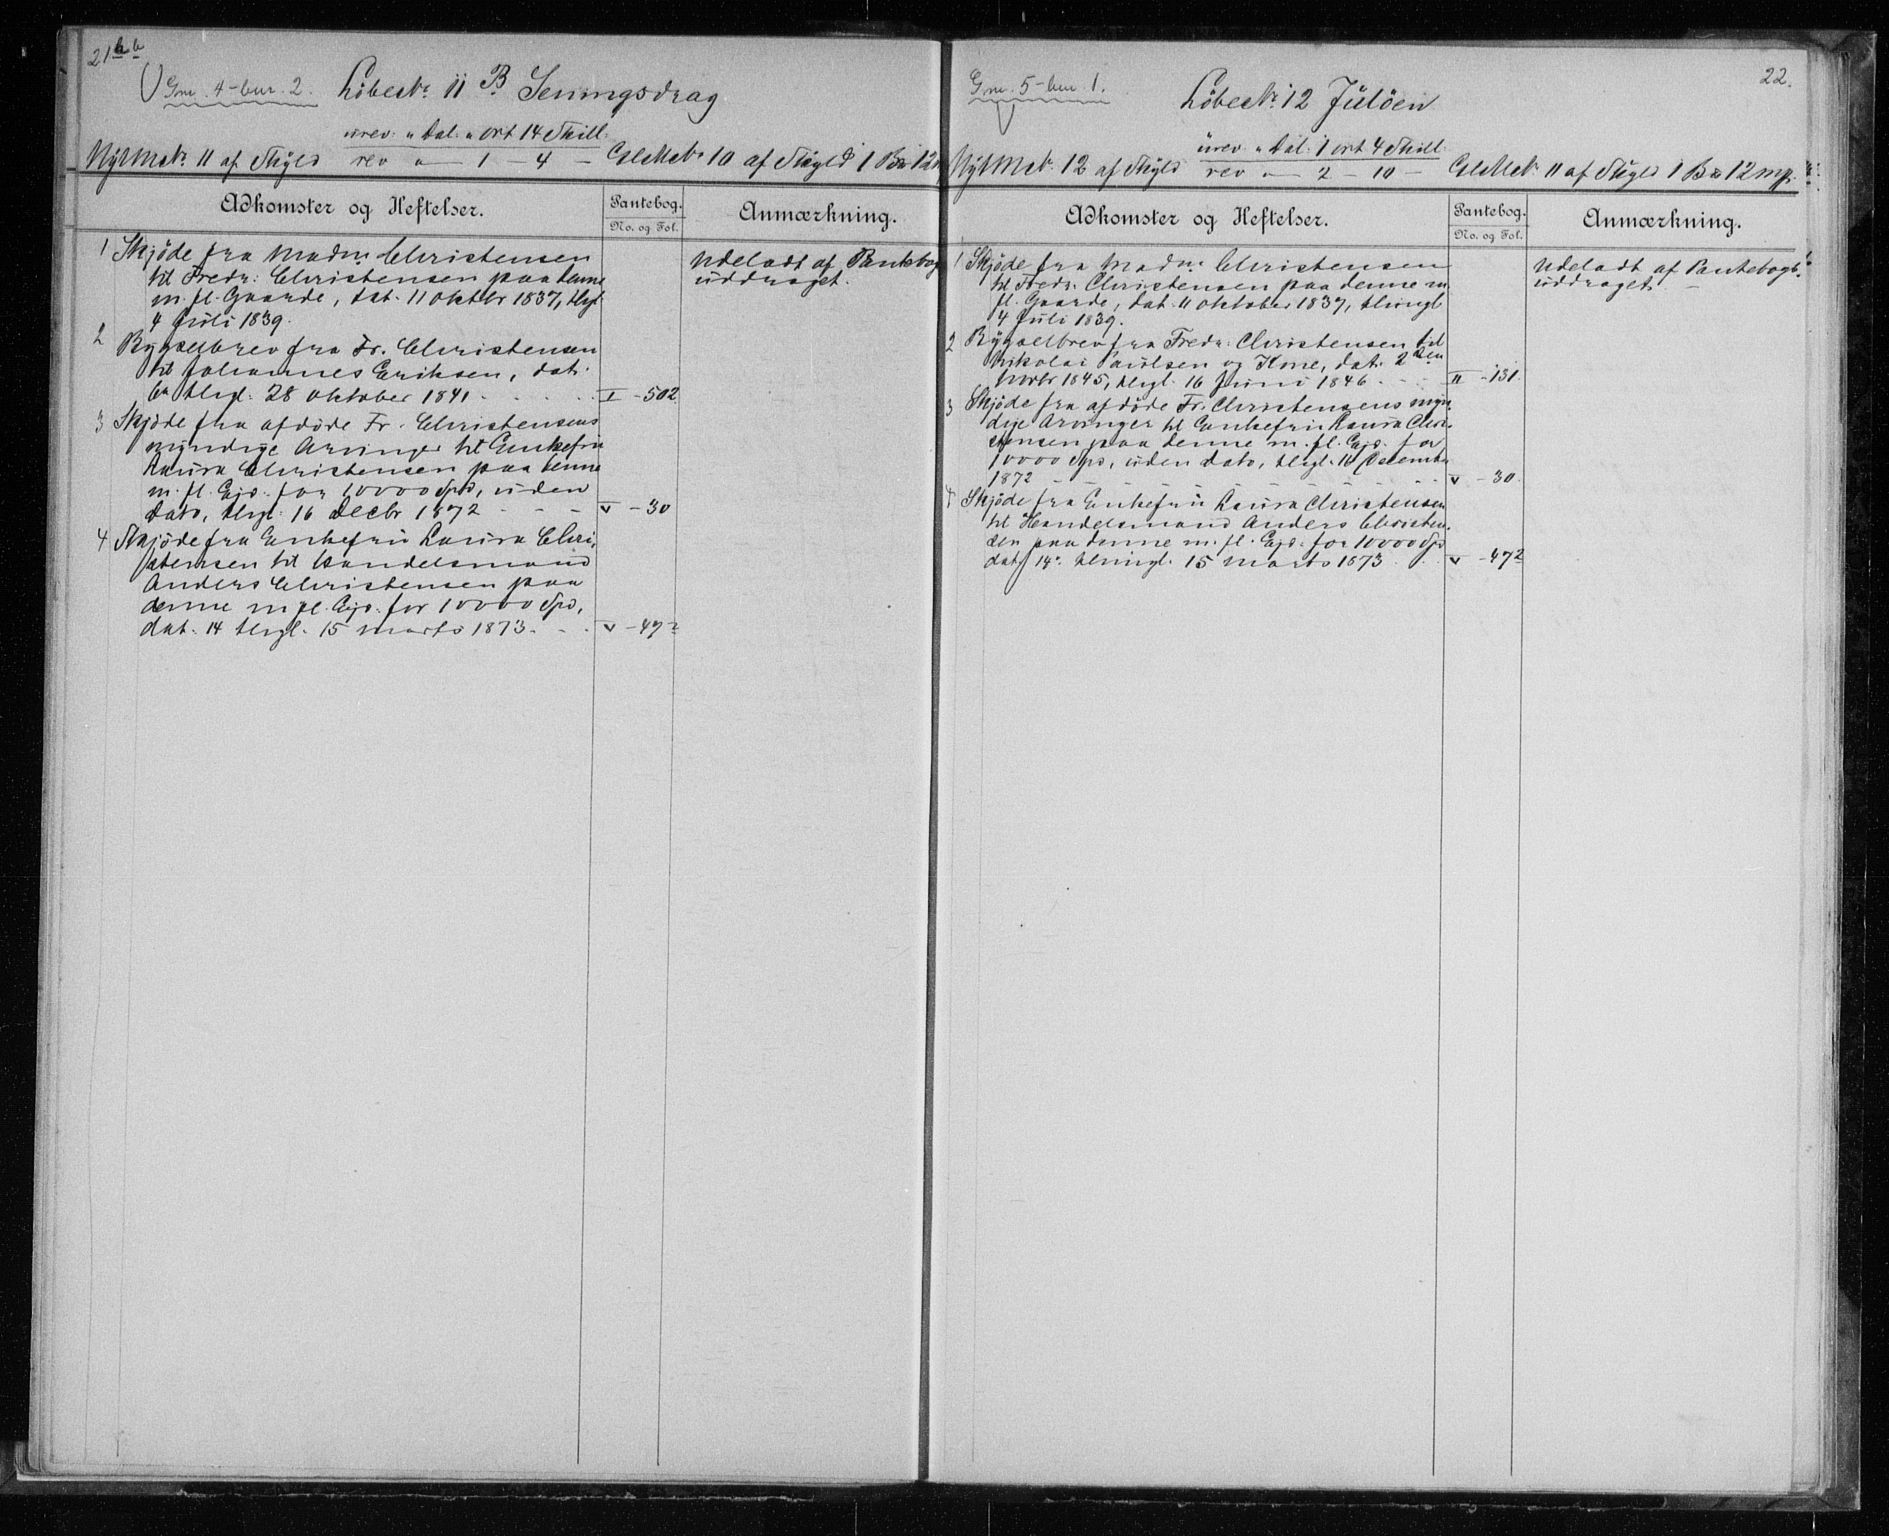 21 b
Gno. 4 - bno. 2. Løbestr 11 B Seningsdrag
urev. " Dal. " ort 14 Skill.
Ny Matr. 11 af Skyld rev " — 1 — 4 — Gl Matr 10 af Skyld 1 B 12
Adkomster og Heftelser.
Pantebog.
No. og Fol.
Anmærkning.
1 Skjøde fra Madm Christensen
til Fredr: Christensen paa denne
m. fl. Gaarde, dat. 11 Oktbr 1837, thgl
4 Juli 1839.
Udeladt af Pantebog
uddraget.
2 Bygselbrev fra Fr. Christensen
til Johannes Eriksen, dat.
thgl. 28 Oktober 1841. I - 502
3 Skjøde fra afdøde Fr. Christensens
myndige Arvinger til Enkefru
Laura Christensen paa denne
m. fl. Ejd. for 10000 Spd, uden
dato, thgl. 16 Decbr 1872 - - - V - 30
4 Skjøde fra Enkefru Laura Chri-
stensen til Handelsmand
Anders Christensen paa
denne m fl. Ejd. for 10000 Spd,
dat. 14 thgl. 15 Marts 1873. - . V - 472
22.
Gno. 5 - bno 1. Løbestr 12 Juløen
urev. " Dal. 1 ort 4 Skill.
Ny Matr. 12 af Skyld rev " — 2 — 10 — Gl Matr 11 af Skyld 1 B 12 mp.
Adkomster og Heftelser.
Pantebog.
No. og Fol.
Anmærkning.
1 Skjøde fra Madm Christensen
til Fredr. Christensen paa denne m
fl. Gaarde, dat. 11 Oktober 1837, thingl
4 Juli 1839.
Udeladt af Pantebogs
uddraget. -
2 Bygselbrev fra Fredr: Christensen til
Nikolai Paulsen og Kone, dat. 2den
Novbr 1845, thgl. 16 Juni 1846. II - 131.
3 Skjøde fra afdøde Fr. Christensens myn-
dige Arvinger til Enkefru Laura Chri-
stensen paa denne m. fl. Ejd. for
10000 Spd, uden dato, thgl. 16 Decembr
1872 - - - V - 30.
4 Skjøde fra Enkefru Laura Christensen
til Handelsmand Anders Christen-
sen paa denne m. fl. Ejd. for 10000 Spd
dat. 14. thingl. 15 Marts 1873. V - 472